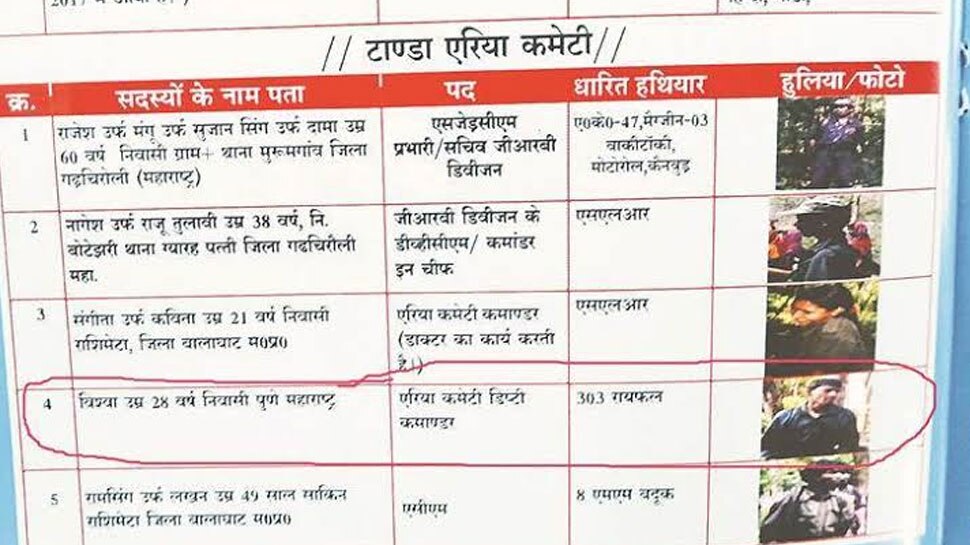 // टाण्डा एरिया कमेटी//
क्र. सदस्यों के नाम पता पद धारित हथियार हुलिया/फोटो
1
राजेश उर्फ मंगू उर्फ सुजान सिंग उर्फ दामा उम्र
60 वर्ष निवासी ग्राम+ थाना मुरूमगांव जिला
गढचिरोली (महाराष्ट्र)
एसजेड़सीएम
प्रभारी/सचिव जीआरबी
डिवीजन
ए0के0-47,मैग्जीन-03
वाकीटॉकी,
मोटोरोल,कॅनवुड़
2
नागेश उर्फ राजू तुलावी उम्र 38 वर्ष, नि.
बोटेझरी थाना ग्यारह पत्ती जिला गढचिरौली
महा.
जीआरवी डिवीजन के
डीव्हीसीएम/ कमांडर
इन चीफ
एसएलआर
3
संगीता उर्फ कविना उम्र 21 वर्ष निवासी
राशिमेटा, जिला वालाघाट म0प्र0
एरिया कमेटी कमाण्डर
(डाक्टर का कार्य करती
है।)
एसएलआर
4
विश्वा उम्र 28 वर्ष निवासी पुणे महाराष्ट्र
एरिया कमेटी डिप्टी
कमाण्डर
303 रायफल
5
रामसिंग उर्फ लखन उम्र 49 साल साकिन
राशिमेटा जिला वालाघाट म0प्र0
एसीएम
8 एमएम बदूक